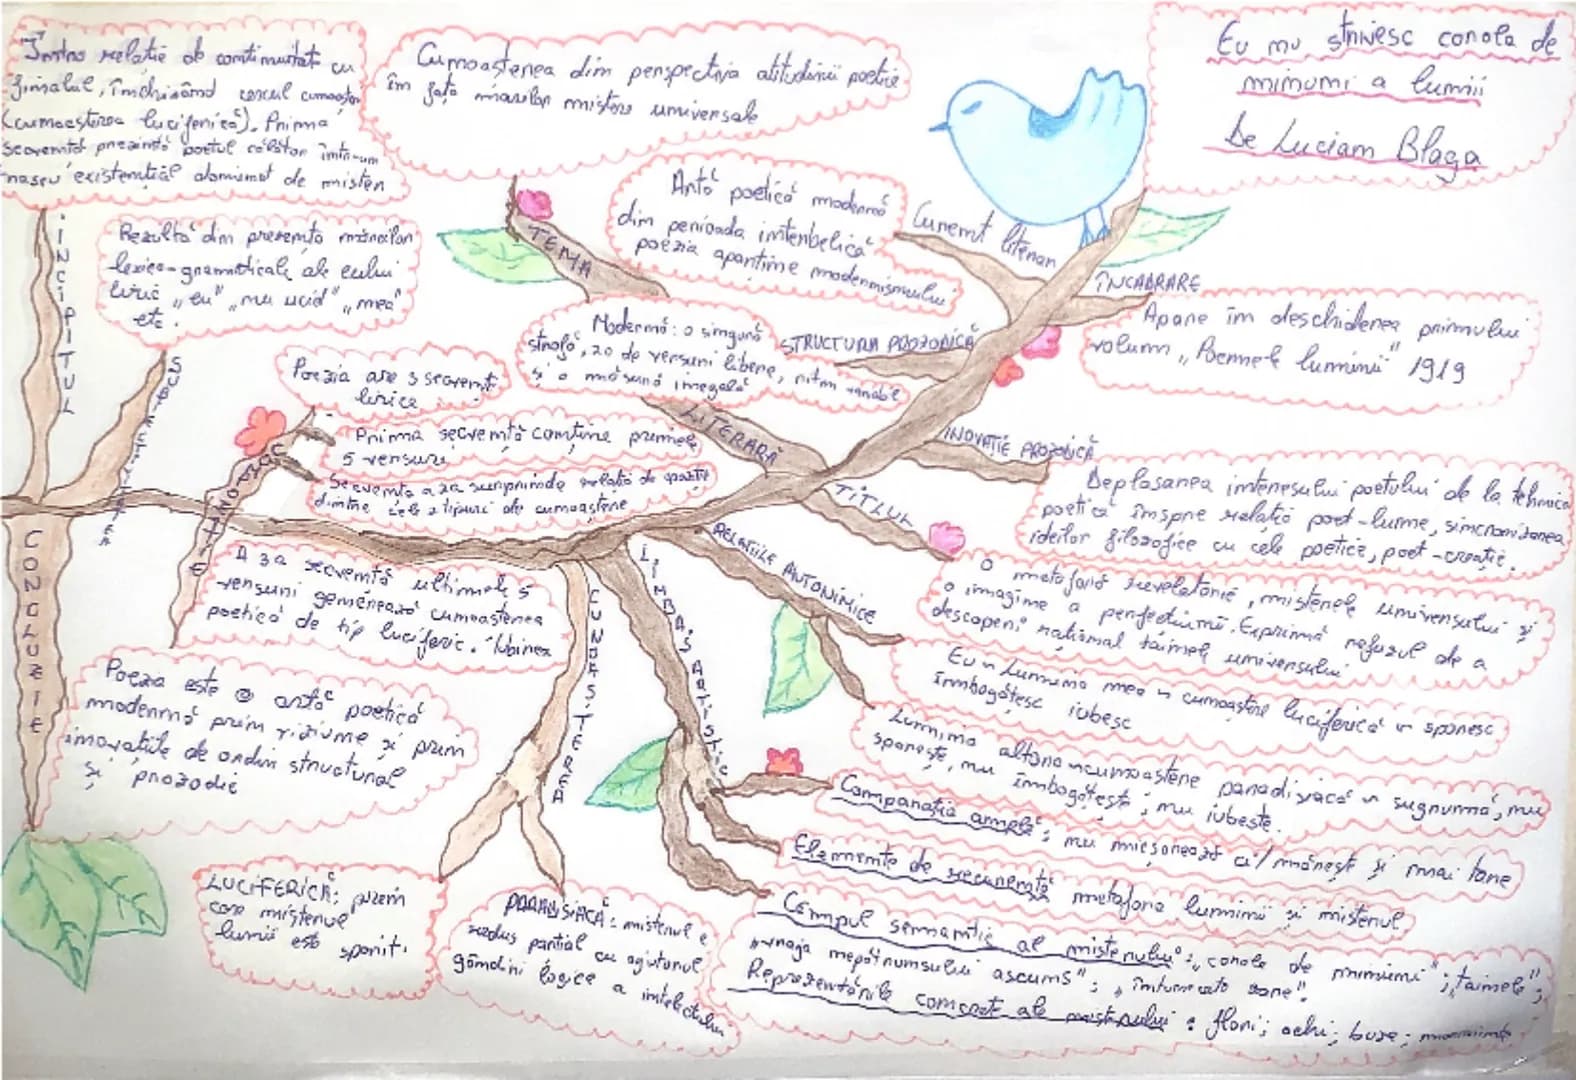 Eu nu strivesc corola de
minumi a lumii
De Lucian Blaga
Într-o relație de continuitate cu
finalul, închizând cercul cunoașterii
(cunoașterea luciferică). Prima
secvență prezintă poetul călător într-un
existențial dominat de mister
INCIPITUL
Cunoașterea din perspectiva atitudinii poetice
în fața marilor mistere universale
TEMA
Artă poetică modernă
din perioada interbelică
poezia aparține modernismului
Curent literar
ÎNCADRARE
LITERARĂ
Apare în deschiderea primului
volum „Poemele luminii" 1919
Rezultă din prezența mărcilor
lexico-gramaticale ale eului
liric „eu" „nu ucid" „mea"
etc.
Modernă: o singură
strofă, 20 de versuri libere, ritm variabil
și o măsură inegală
STRUCTURA PROZODICĂ
INOVAȚIE PROZODICĂ
Deplasarea interesului poetului de la tehnica
poetică înspre relația poet-lume, sincronizarea
ideilor filozofice cu cele poetice, poet-creație.
Poezia are 3 secvențe
lirice
Prima secvență conține primele
5 versuri
Secvența a 2a surprinde relația de opoziție
dintre cele 2 tipuri de cunoaștere
A 3a secvență ultimele 5
versuri generează cunoașterea
poetică de tip luciferic. Iubirea
TITLUL
O metaforă revelatorie, misterele universului și
o imagine a perfecțiunii. Exprimă refuzul de a
descoperi rațional tainele universului
RELAȚIILE ANTONIMICE
Eu „Lumina mea" cunoaștere luciferică" sporesc
îmbogățesc iubesc
Lumina altora „cunoaștere paradiziacă" sugrumă, nu
sporește, nu îmbogățește, nu iubește.
LIMBAJ ARTISTIC
Comparația amplă; nu micșorează ci/mărește și mai tare
Elemente de recurență metafora luminii și misterul
Câmpul semantic al misterului: „corola de minumi"; „tainele";
„vraja nepătrunsului ascuns"; „întunecata zare".
Reprezentările concrete ale misterului: flori; ochi; buze; morminte
CONCLUZIE
Poezia este o artă poetică
modernă prin viziune și prin
inovațiile de ordin structural
și prozodic
LUCIFERICĂ; prin
care misterul
lumii este sporit.
PARADISIACĂ: misterul e
redus parțial cu ajutorul
gândirii logice a intelectului